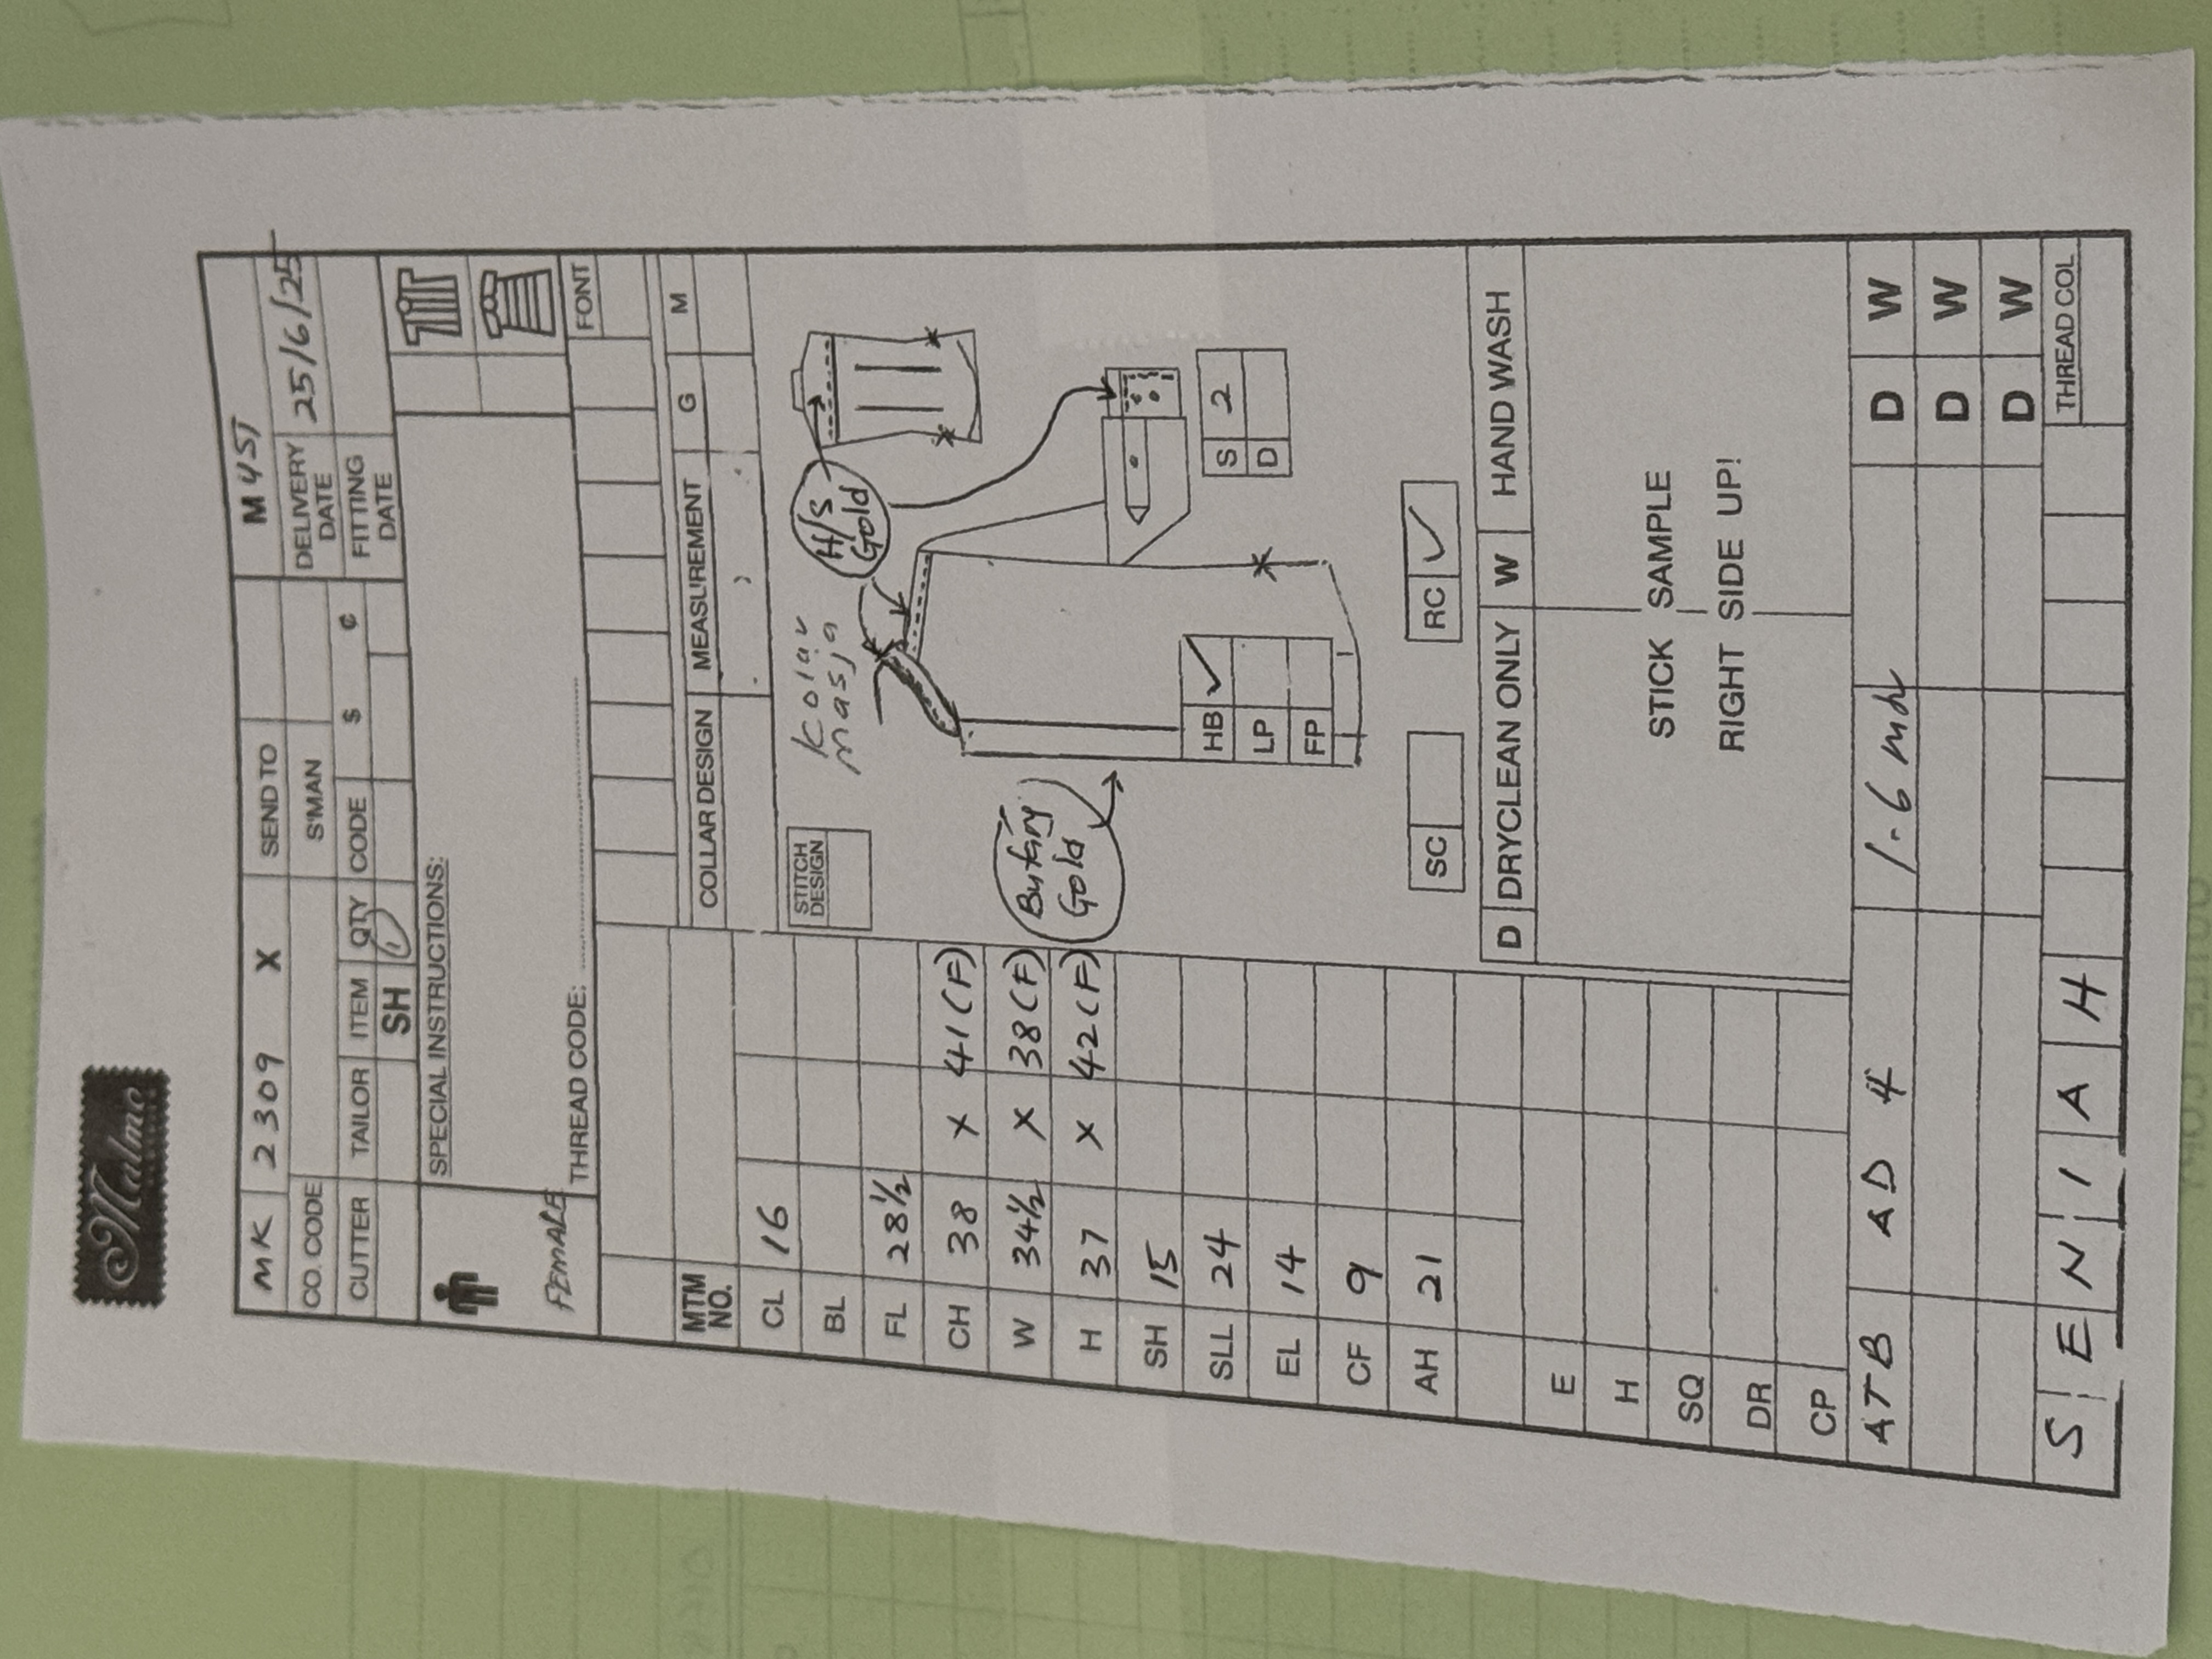 Malmo
MK 2309 X SEND TO M 4ST
CO. CODE S'MAN DELIVERY DATE 25/6/25
CUTTER TAILOR ITEM QTY CODE $ ¢ FITTING DATE
SH 1
SPECIAL INSTRUCTIONS:
FEMALE
THREAD CODE:
FONT
MTM NO.
COLLAR DESIGN MEASUREMENT G M
CL 16
BL
FL 28½
CH 38 X 41(F)
W 34½ X 38(F)
H 37 X 42(F)
SH 15
SLL 24
EL 14
CF 9
AH 21
E
H
SQ
DR
CP
STITCH DESIGN
Kolar
masja
H/S
Gold
Butang
Gold
HB ✓
LP
FP
S 2
D
SC
RC ✓
D DRYCLEAN ONLY W HAND WASH
STICK SAMPLE
RIGHT SIDE UP!
ATB AD 4 1.6 D W
D W
D W
SENIAH THREAD COL
OUTLET COPY